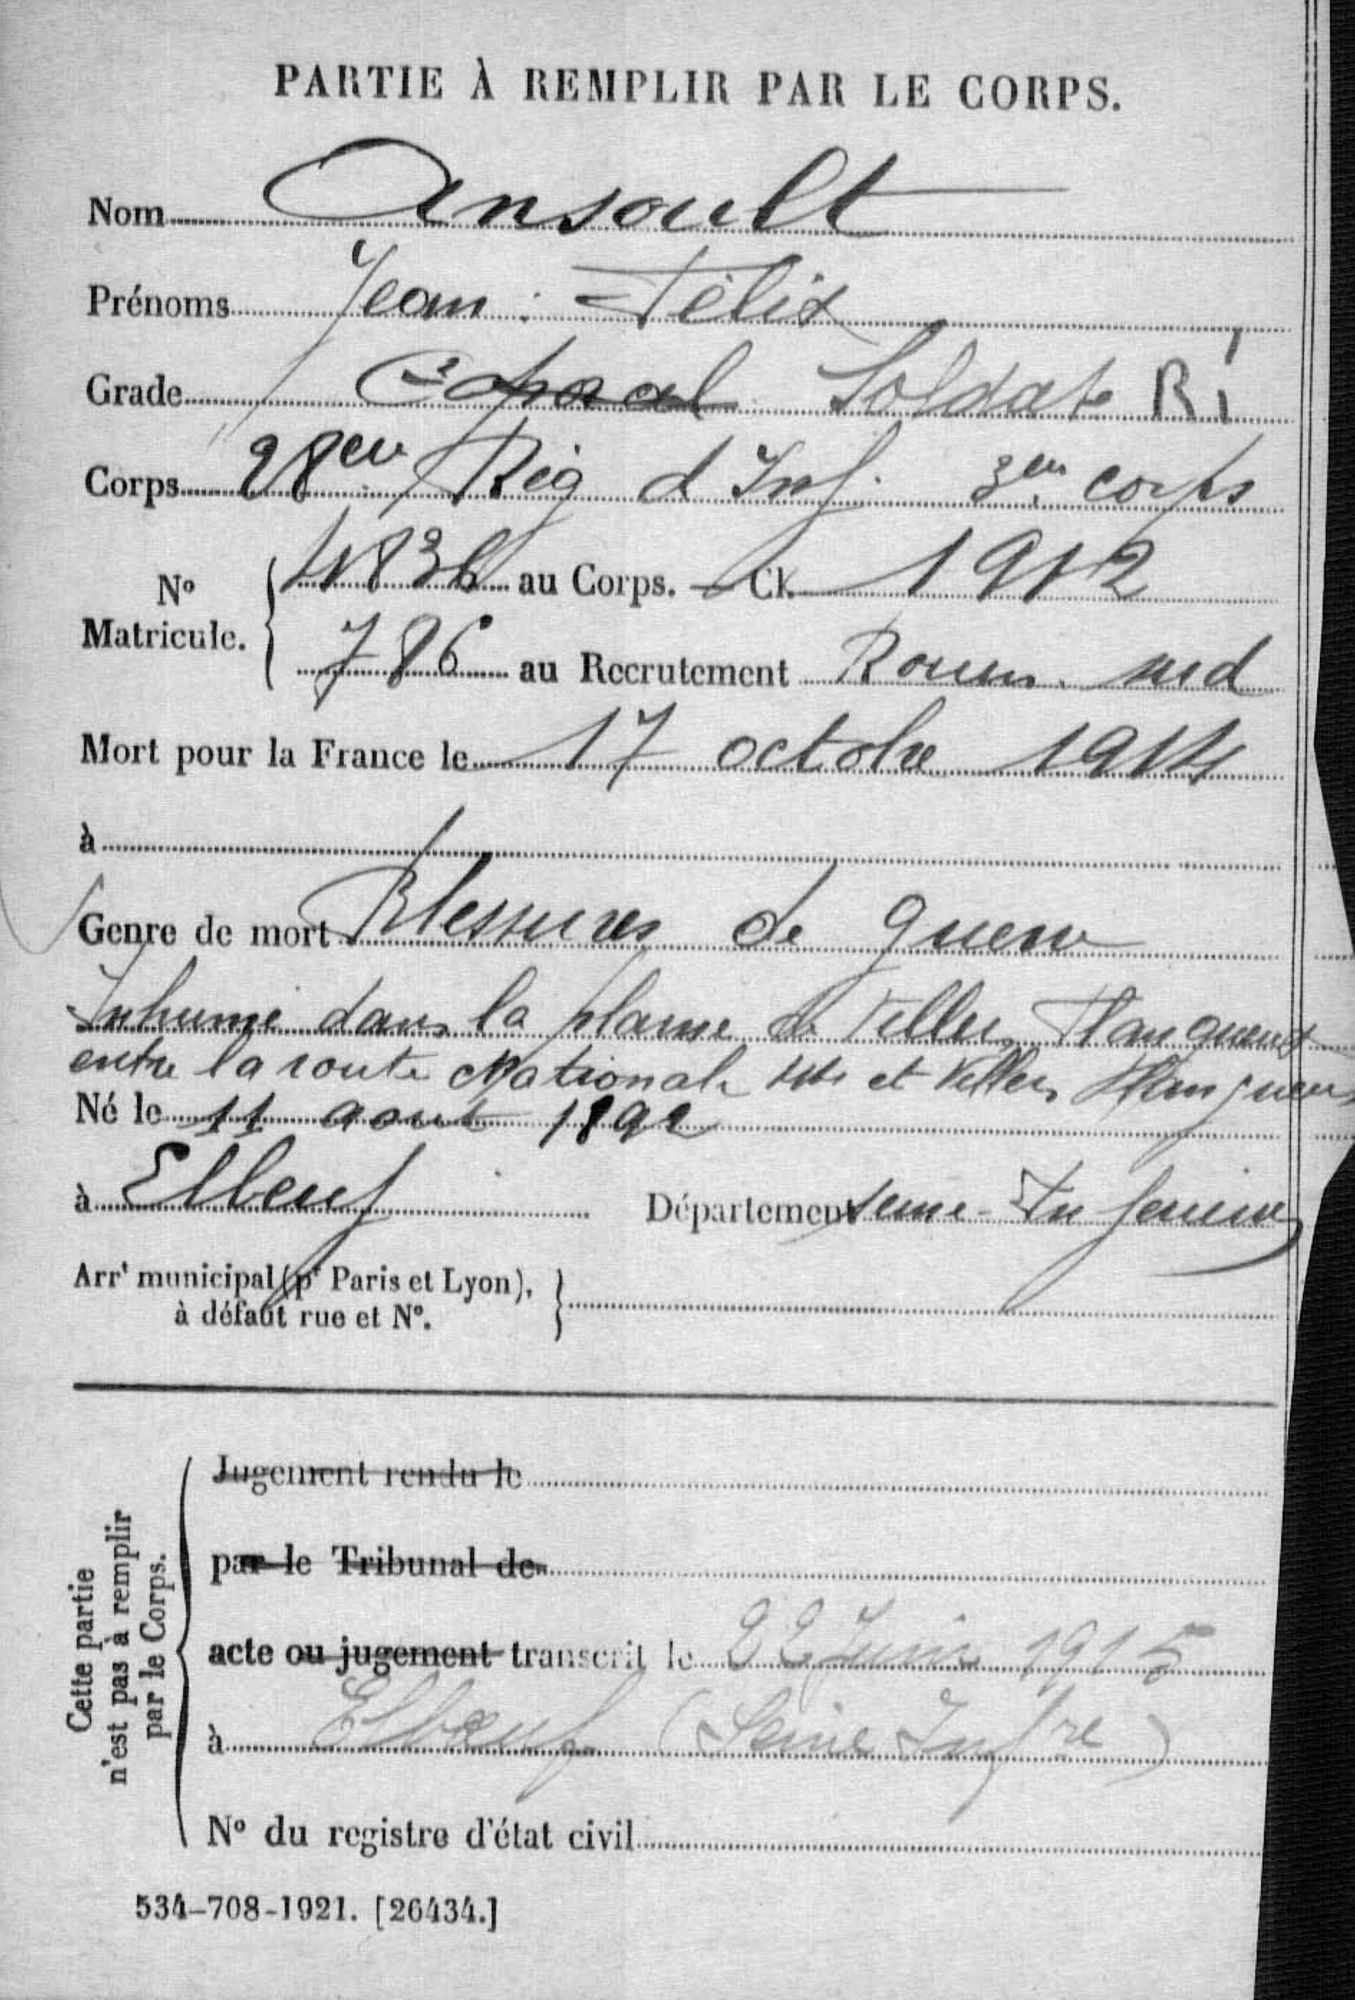 PARTIE À REMPLIR PAR LE CORPS.
Nom Ansoult
Prénoms Jean Félix
Grade Caporal Soldat RI
Corps 28em Rég d'Inf. 3em corps
No Matricule. 4836 au Corps. — Cl. 1912
786 au Recrutement Rouen sud
Mort pour la France le 17 octobre 1914
à
Genre de mort Blessures de guerre
Inhumé dans la plaine de Villers Flanqueux
entre la route Nationale et Villers
Né le 11 aout 1892
à Elbeuf Département Seine-Inferieure
Arrt municipal (pr Paris et Lyon),
à défaut rue et No.
Cette partie
n'est pas à remplir
par le Corps.
Jugement rendu le
par le Tribunal de
acte ou jugement transcrit le 22 Juin 1915
à Elbeuf (Seine Infre)
No du registre d'état civil
534-708-1921. [26434.]